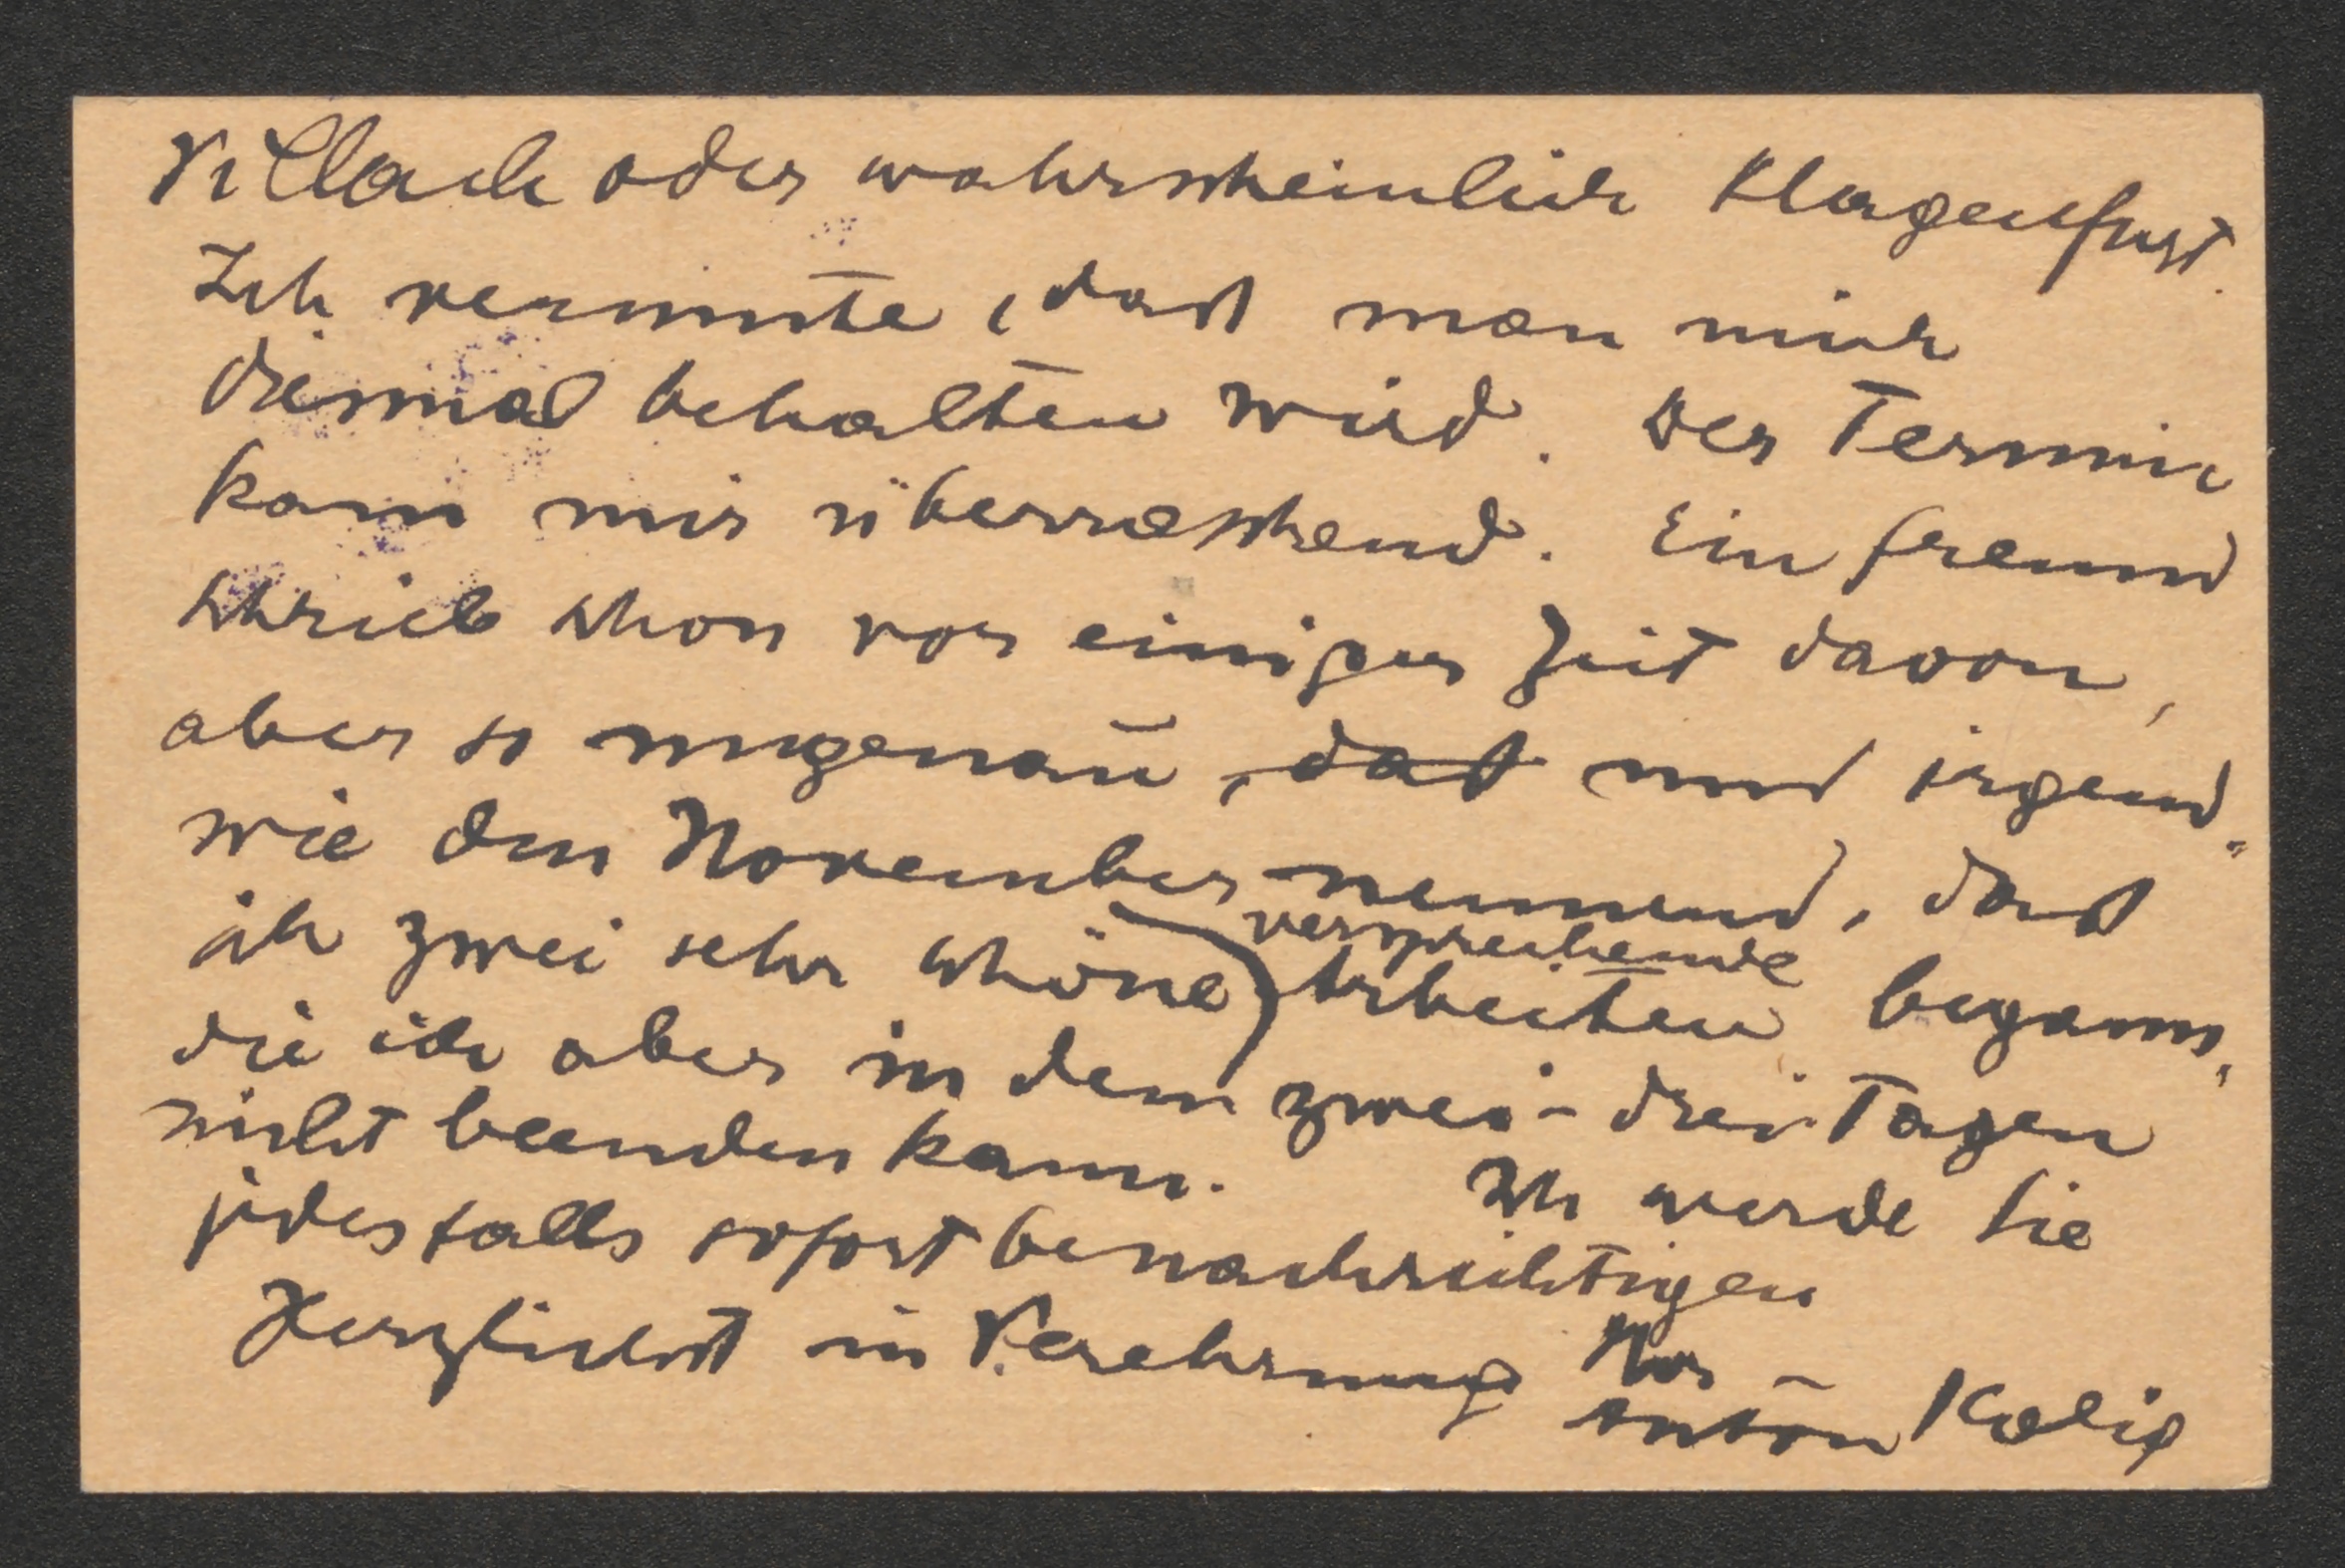 Villach oder wahrscheinlich Klagenfurt.
Ich vermute, dass man mich
diesmal behalten wird. Der Termin
kam mir überraschend. Ein Freund
schrieb schon vor einiger Zeit davon,
aber so ungenau, dass und irgend-
wie den November nennend, dass
ich zwei sehr schöne versprechende Arbeiten begann,
die ich aber in den zwei-drei Tagen
nicht beenden kann. Ich werde Sie
jedesfalls sofort benachrichtigen
Herzlichst in Verehrung Ihr
Anton Kolig